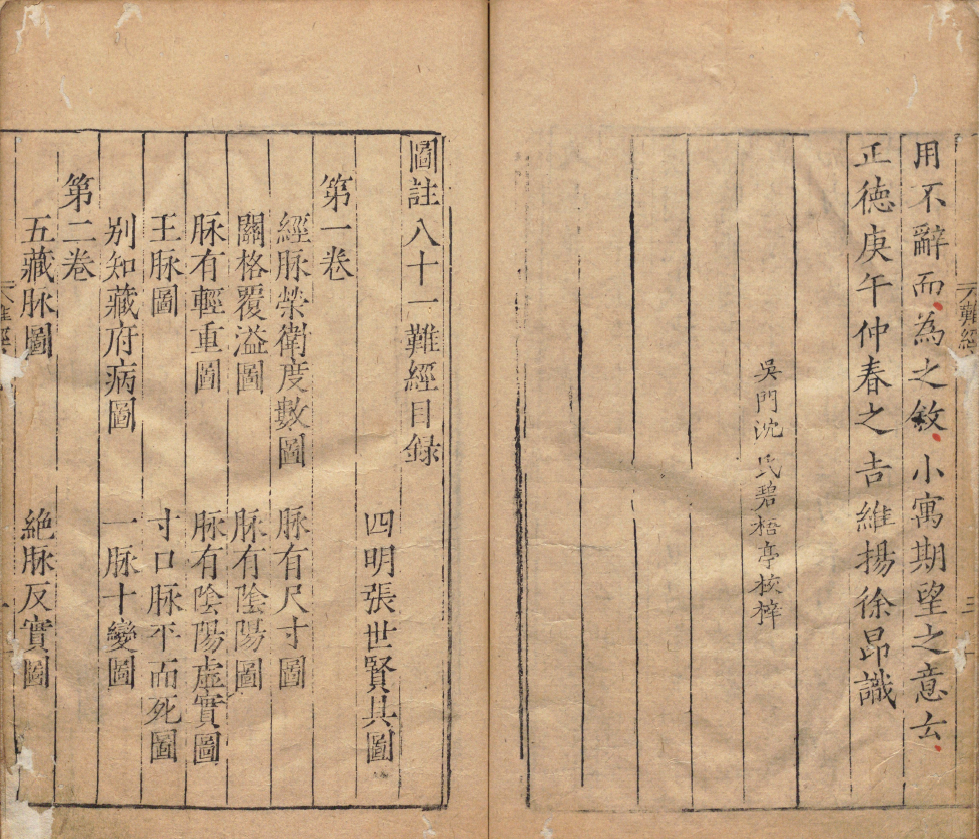 用不辭而為之敘小寓期望之意云
正徳庚午仲春之吉維揚徐昂識
吳門沈氏碧梧亭校梓
圖註八十一難經目錄
四明張世賢具圖
第一卷
經脉榮衛度數圖 脉有尺寸圖
關格覆溢圖 脉有陰陽圖
脉有輕重圖 脉有陰陽虛實圖
王脉圖 寸口脉平而死圖
別知藏府病圖 一脉十變圖
第二卷
五藏脉圖 絶脉反實圖
難經